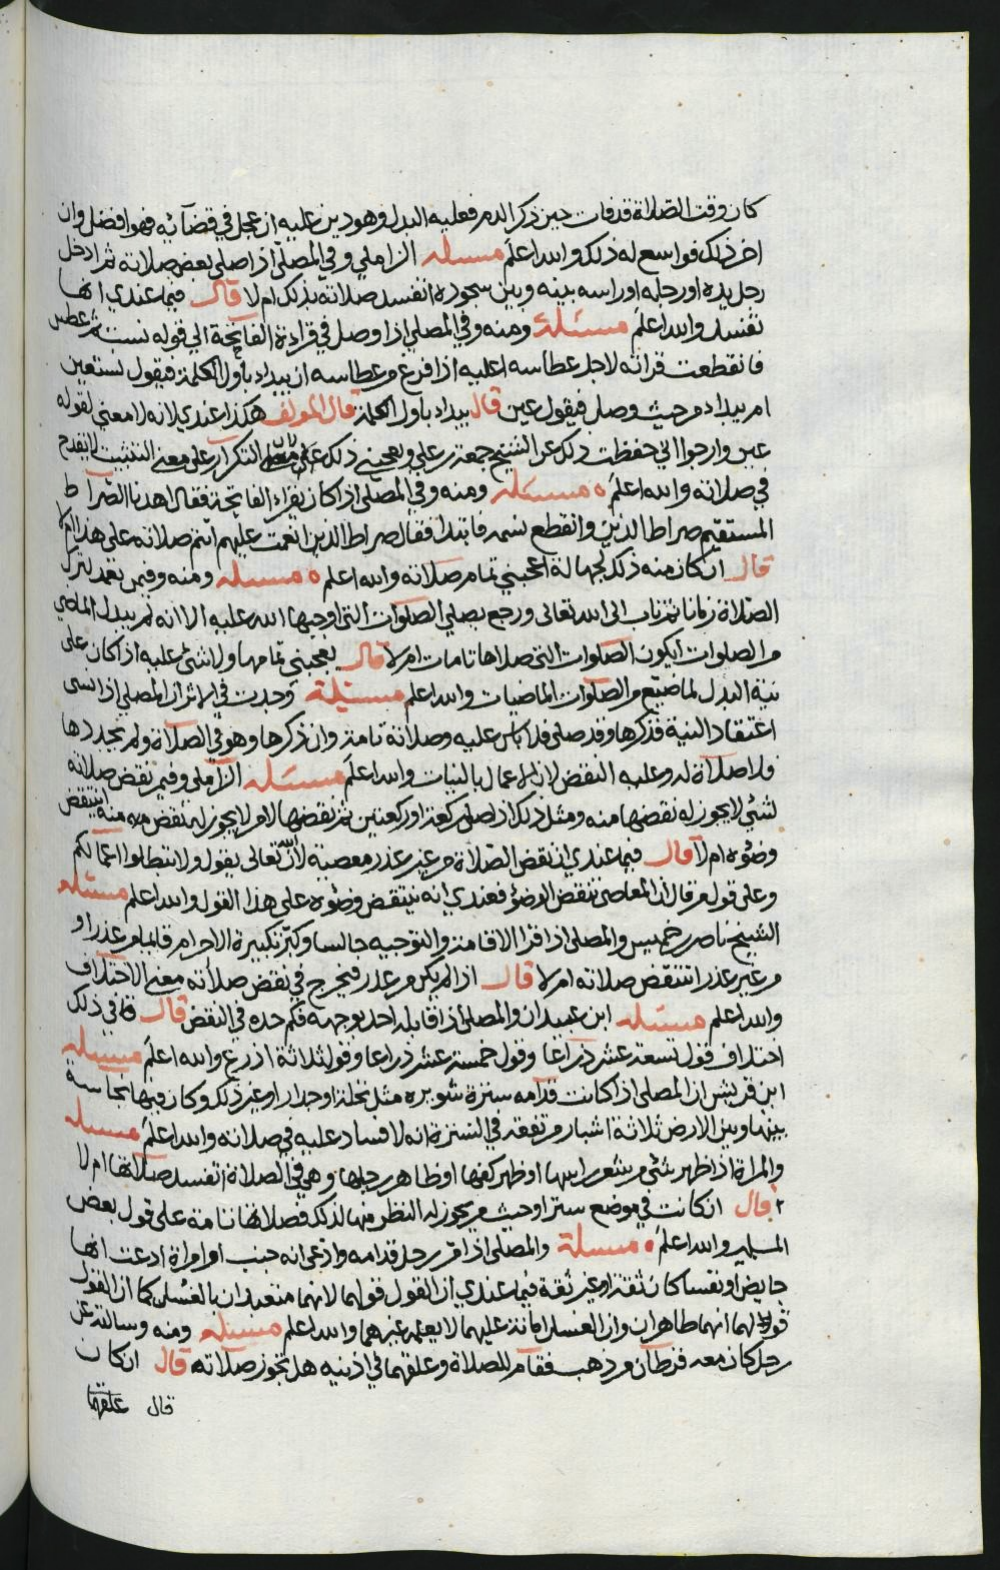 كان وقت الصلاة قد فات حين ذكر الدم فعليه البدل وهو دين عليه ان عجل في قضآئه فهو افضل وان
اخر ذلك فواسع له ذلك والله اعلم مسئله الزاملي وفي المصلي اذا صلى بعض صلاته ثم ادخل
رجل يده او رجله او راسه بينه وبين سجوده اتفسد صلاته بذلك ام لا قال فيما عندي انها
تفسد والله اعلم مسئلة ومنه وفي المصلي اذا وصل في قراءة الفاتحة الى قوله نست ثم عطس
فانقطعت قراته لاجل عطاسه اعليه اذا فرغ من عطاسه ان يبداء باول الكلمة فيقول نستعين
ام يبداء من حيث وصل فيقول عين قال يبداء باول الكلمة قال المؤلف هكذا عندي لانه لا معنى لقوله
عين وارجوا اني حفظت ذلك عن الشيخ جمعة بن علي ويعجبني ذلك على التكرار على معنى التثبيت لا يقدح
في صلاته والله اعلم ه مسئله ومنه وفي المصلي اذا كان يقراء الفاتحة فقال اهدنا الصرآط
المستقيم صراط الذين وانقطع نسمه فابتدا فقال صراط الذين انعمت عليهم اتتم صلاته على هذا ام لا
قال ان كان منه ذلك لجهالة اعجبني تمام صلاته والله اعلم ه مسئله ومنه وفمن تعمد لترك
الصلاة زمانا ثم تاب الى الله تعالى ورجع يصلي الصلوات التي اوجبها الله عليه الا انه لم يبدل الماضي
من الصلوات ايكون الصلوات التي صلاها تامات ام لا قال يعجبني تمامها ولا شئ عليه اذا كان على
نية البدل لما ضيع من الصلوات الماضيات والله اعلم مسئلة وجدت في الاثر ان المصلي اذا نسى
اعتقاد النية فذكرها وقد صلى فلا باس عليه وصلاته تامة وان ذكرها وهو في الصلاة ولم يجددها
فلا صلاة له وعليه النقض لان الاعمال بالنيات والله اعلم مسئله الزاملي وفيمن نقض صلاته
لشئي لا يجوز له نقضها منه ومثل ذلك اذا صلى ركعة او ركعتين ثم نقضها لامر لا يجوز له نقض منه اينتقض
وضؤه ام لا قال فيما عندي ان نقض الصلاة من غير عذر معصية لان الله تعالى يقول ولا تبطلوا اعمالكم
وعلى قول من قال ان المعاصي تنقض الوضؤ فعندي انه ينتقض وضؤه على هذا القول والله اعلم مسئله
الشيخ ناصر بن خميس والمصلى اذا قرا الاقامة والتوجيه جالسا وكبر تكبيرة الاحرام قائما من عذر او
من غير عذر اتنتقض صلاته ام لا قال اذا لم يكن من عذر فيخرج في نقض صلاته معنى الاختلاف
والله اعلم مسئله ابن عبيدان والمصلى اذا قابله احد بوجهه فكم حده في النقض قال في ذلك
اختلاف قول تسعة عشر ذراعا وقول خمسة عشر ذراعا وقول ثلاثة اذرع والله اعلم مسئله
ابن قريش ان المصلى اذا كانت قدامه سترة مثل نخلة او جدار او غير ذلك وكان فيها نجاسة
بينها وبين الارض ثلاثة اشبار مرتفعة في السترة انه لا فساد عليه في صلاته والله اعلم مسئله
والمراة اذا ظهر شئ من شعر راسها او ظهر كفها او ظاهر رجلها وهي في الصلاة اتفسد صلاتها ام لا
قال ان كانت في موضع ستر او حيث من يجوز له النظر منها لذلك فصلاتها تامة على قول بعض
المسلمين والله اعلم ه مسئلة والمصلي اذا مر رجل قدامه وادعى انه جنب او امراة ادعت انها
حايض او نفسا كان ثقة او غير ثقة فيما عندي ان القول قولهما لانهما متعبدان بالغسل كما ان القول
قولهما انهما طاهران وان الغسل امانة عليهما لا يعلمه غيرهما والله اعلم مسئله ومنه وسالته عن
رجل كان معه قرطان من ذهب فقام للصلاة وعلقهما في اذنيه هل تجوز صلاته قال ان كان
قال علقهما